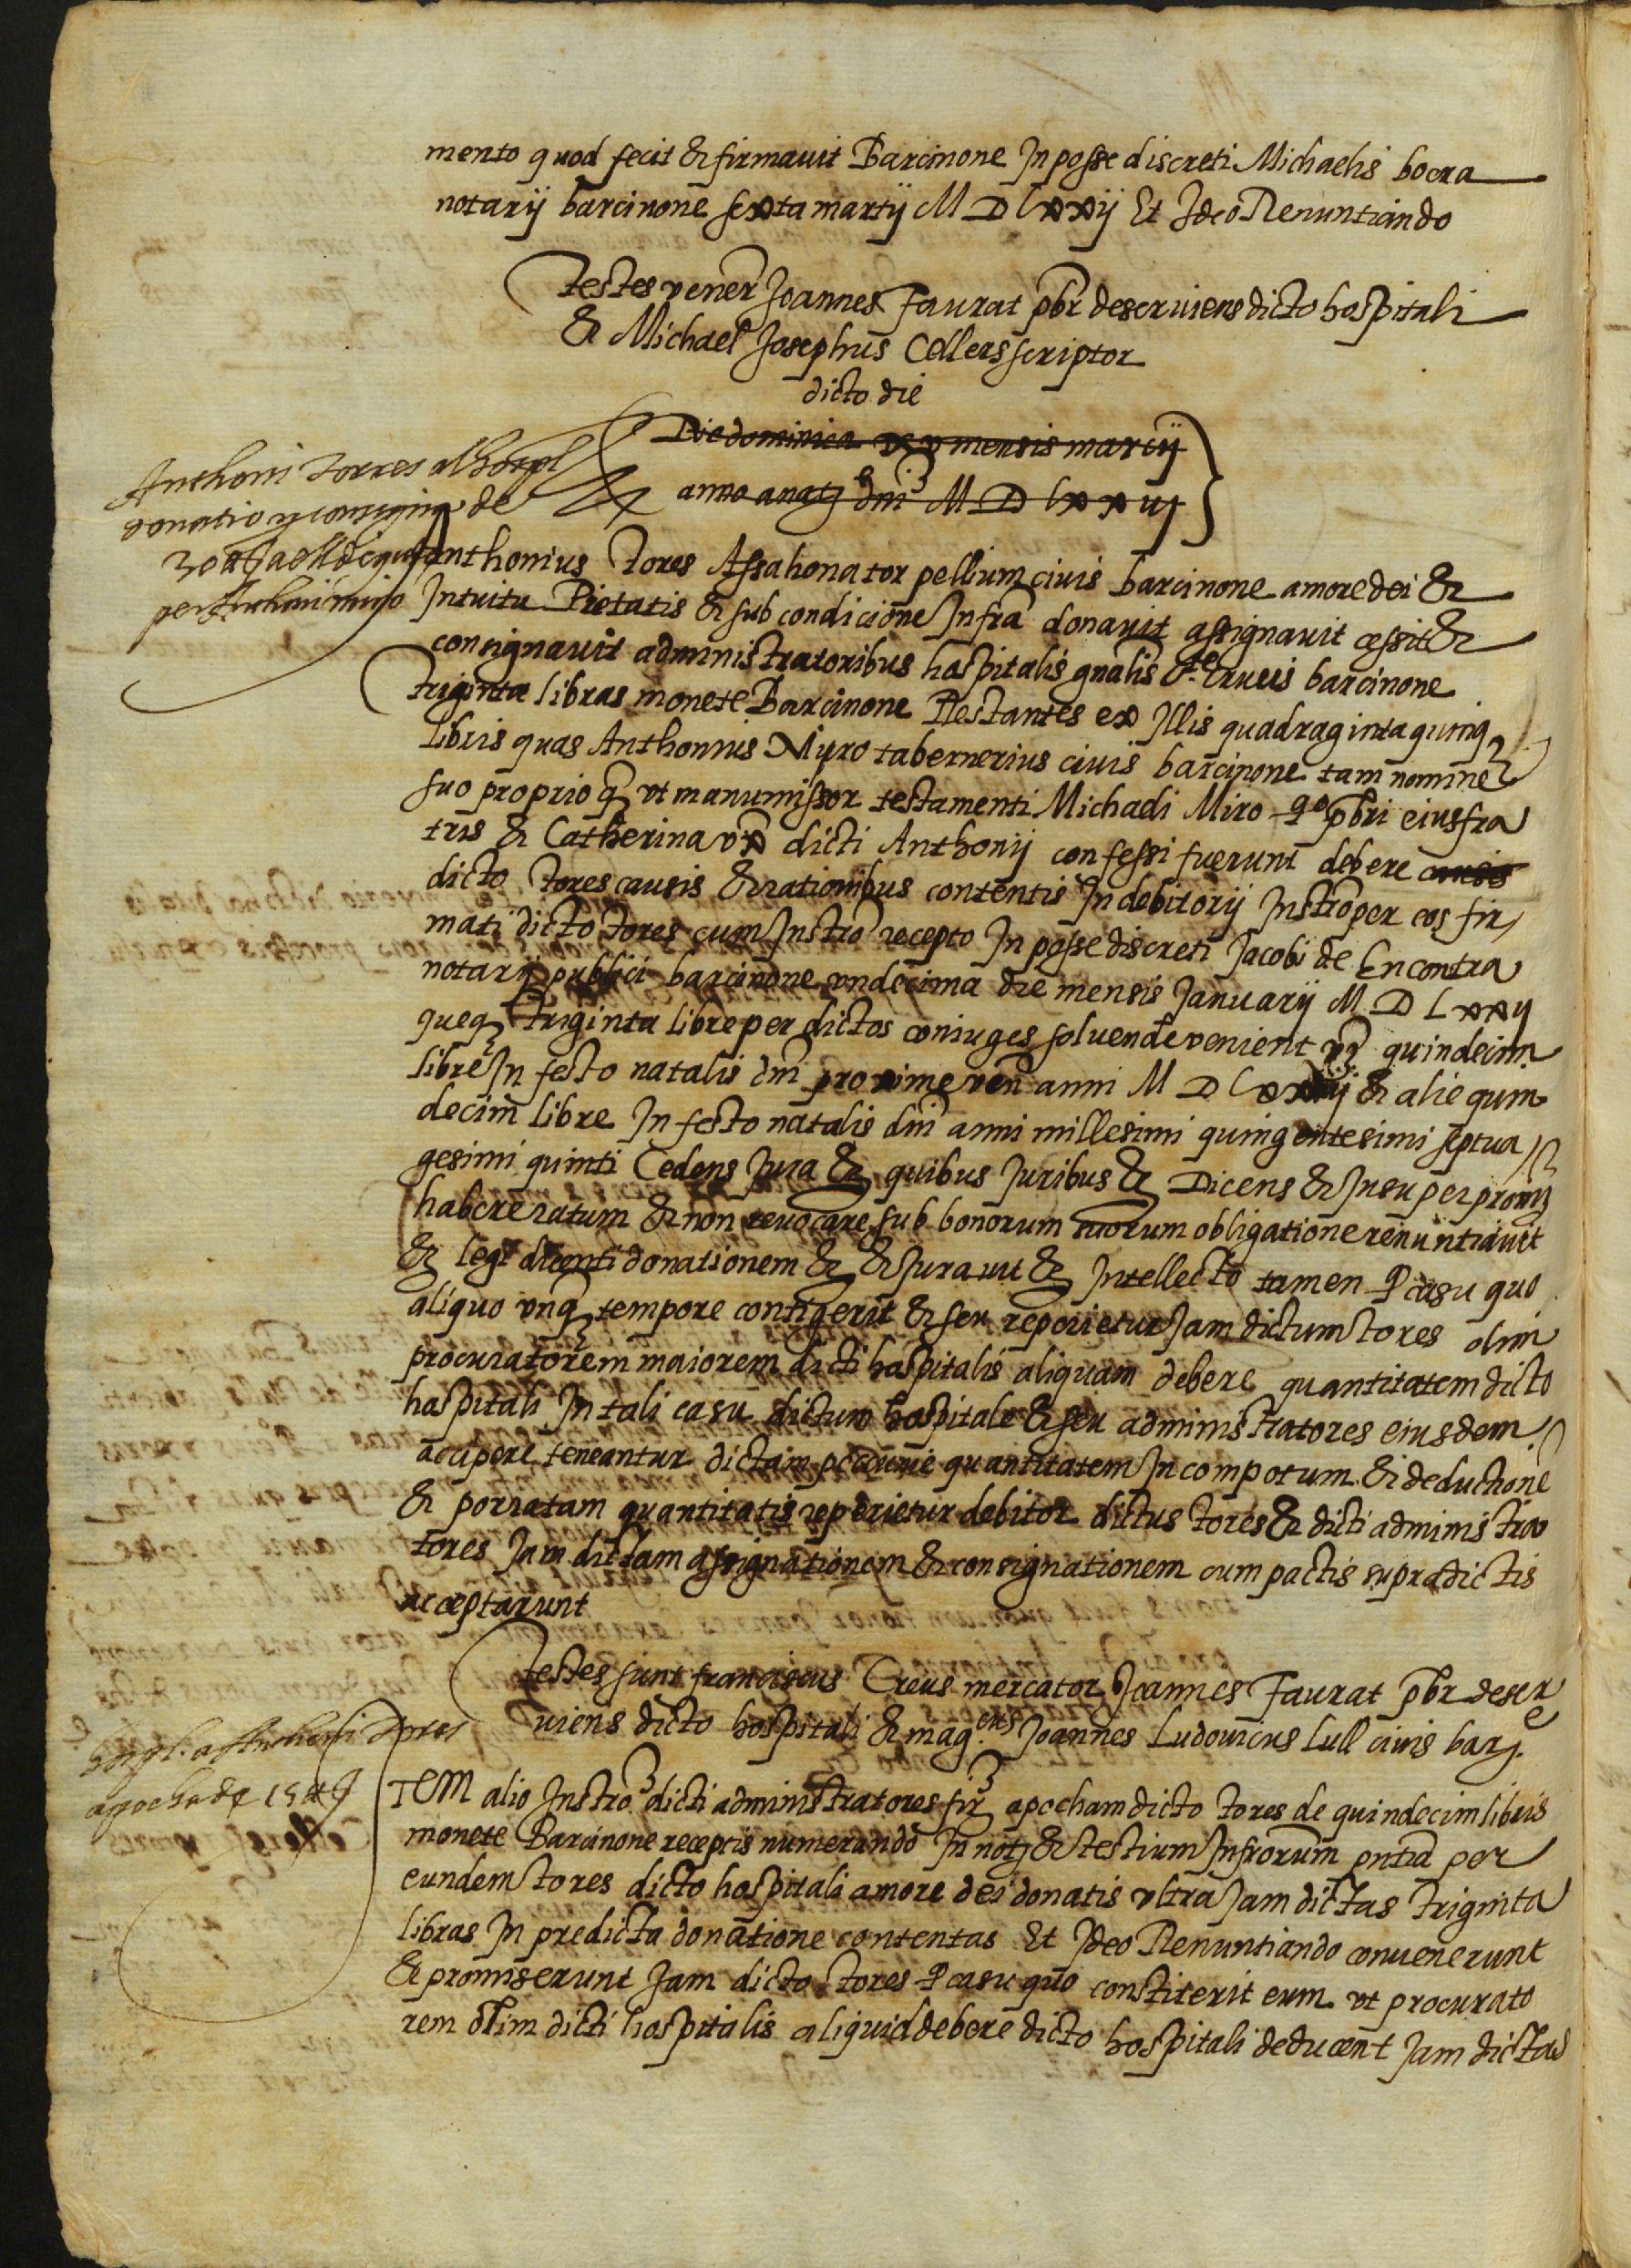 mento quod fecit & firmauit Barcinone In posse discreti Michaelis boera
notarij barcinone sexta martij M D Lxxij Et Ideo Renuntiando
testes vener Joannes Faurat pbr deseruiens dicto hospitali
& Michael Josephus Cellers scriptor
dicto die
Die dominica mensis martij
anno a natj dni M D Lxx iij
Anthoni torres al hospl
donatio y consigna de
per Anthoni miro
Anthonius Tores Assahonator pellium ciuis barcinone amore dei &
Intuitu Pietatis & sub condicione Infra donauit assignauit cessit &
consignauit administratoribus hospitalis gnalis Ste Crucis barcinone
triginta libras monete Barcinone Restantes ex Illis quadraginta quinq
libris quas Anthonius Myro tabernerius ciuis barcinone tam nomine
suo proprio q vt manumissor testamenti Michaeli Miro qo pbri eius fra
tris & Catherina vx dicti Anthonij confessi fuerunt debere causis
dicto Tores causis & rationibus contentis In debitorij Instro per eos fir
mati dicto tores cum Instro recepto In posse discreti Jacobi de Encontra
notarij publici barcinone vndecima die mensis Januarij M D Lxxij
queq triginta libre per dictos coniuges soluende venient vz quindecim
libre In festo natalis dni proxime ven anni M D & alie quin
decim libre In festo natalis dni anni millesimi quingentesimi septua
gesimi quinti Cedens Jura & quibus Juribus & Dicens & Insuper promj
habere ratum & non reuocare sub bonorum suorum obligatione renuntiauit
& legi dicenti donationem & & Jurauit & Intellecto tamen q casu quo
aliquo vnq tempore contigerit & seu reperietur Jam dictum tores olim
procuratorem maiorem dicti hospitalis aliquam debere quantitatem dicto
hospitali In tali casu dictum hospitale & seu administratores eiusdem
accipere teneantur dictam pecunie quantitatem In compotum & deductione
& porratam quantitatis reperietur debitor dictus tores & dicti administra
tores Jam dictam assignationem & consignationem cum pactis supradictis
acceptarunt
testes sunt franciscus Creus mercator Joannes Faurat pbr deser
uiens dicto hospitali & mag.cus Joannes Ludouicus Lull ciuis barj.
hospl. a Anthoni Tores
apocha de 15 ll
ITEM alio Instro dicti administratores fir apocham dicto tores de quindecim libris
monete Barcinone receptis numerando In notj & testium Infrorum pntia per
eundem tores dicto hospitali amore dei donatis vltra Jam dictas triginta
libras In predicta donatione contentas Et Ideo Renuntiando conuenerunt
& promiserunt Jam dicto tores q casu quo constiterit eum vt procurato
rem olim dicti hospitalis aliquid debere dicto hospitali deducent Jam dictas